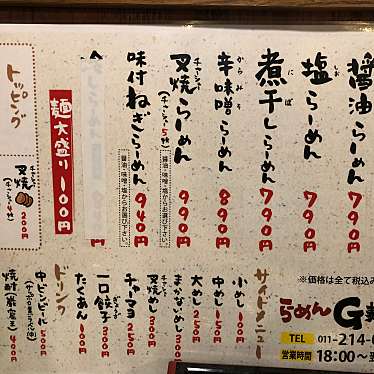 醤油らーめん 790
塩らーめん 790円
しお
煮干しらーめん 790円
にぼ
辛味噌らーめん 890円
からみそ
叉焼らーめん 990円
チャーシュー
(チャーシュー5枚)
味付ねぎらーめん 940円
醤油・味噌・塩からお選び下さい。
麺大盛り 100円
トッピング
叉焼
チャーシュー
(チャーシュー4枚)
200円
サイドメニュー
小めし 100円
中めし 150円
大めし 250円
まかないめし 300円
叉焼めし 300円
チャーシュー
チャーマヨ 250円
一口餃子 300円
ぎょうざ
たくあん 100円
ドリンク
中ビンビール 500円
(サッポロ黒ラベル)
焼酎 400円
※価格は全て税込み
らめんG麺
TEL 011-214-
営業時間 18:00〜翌